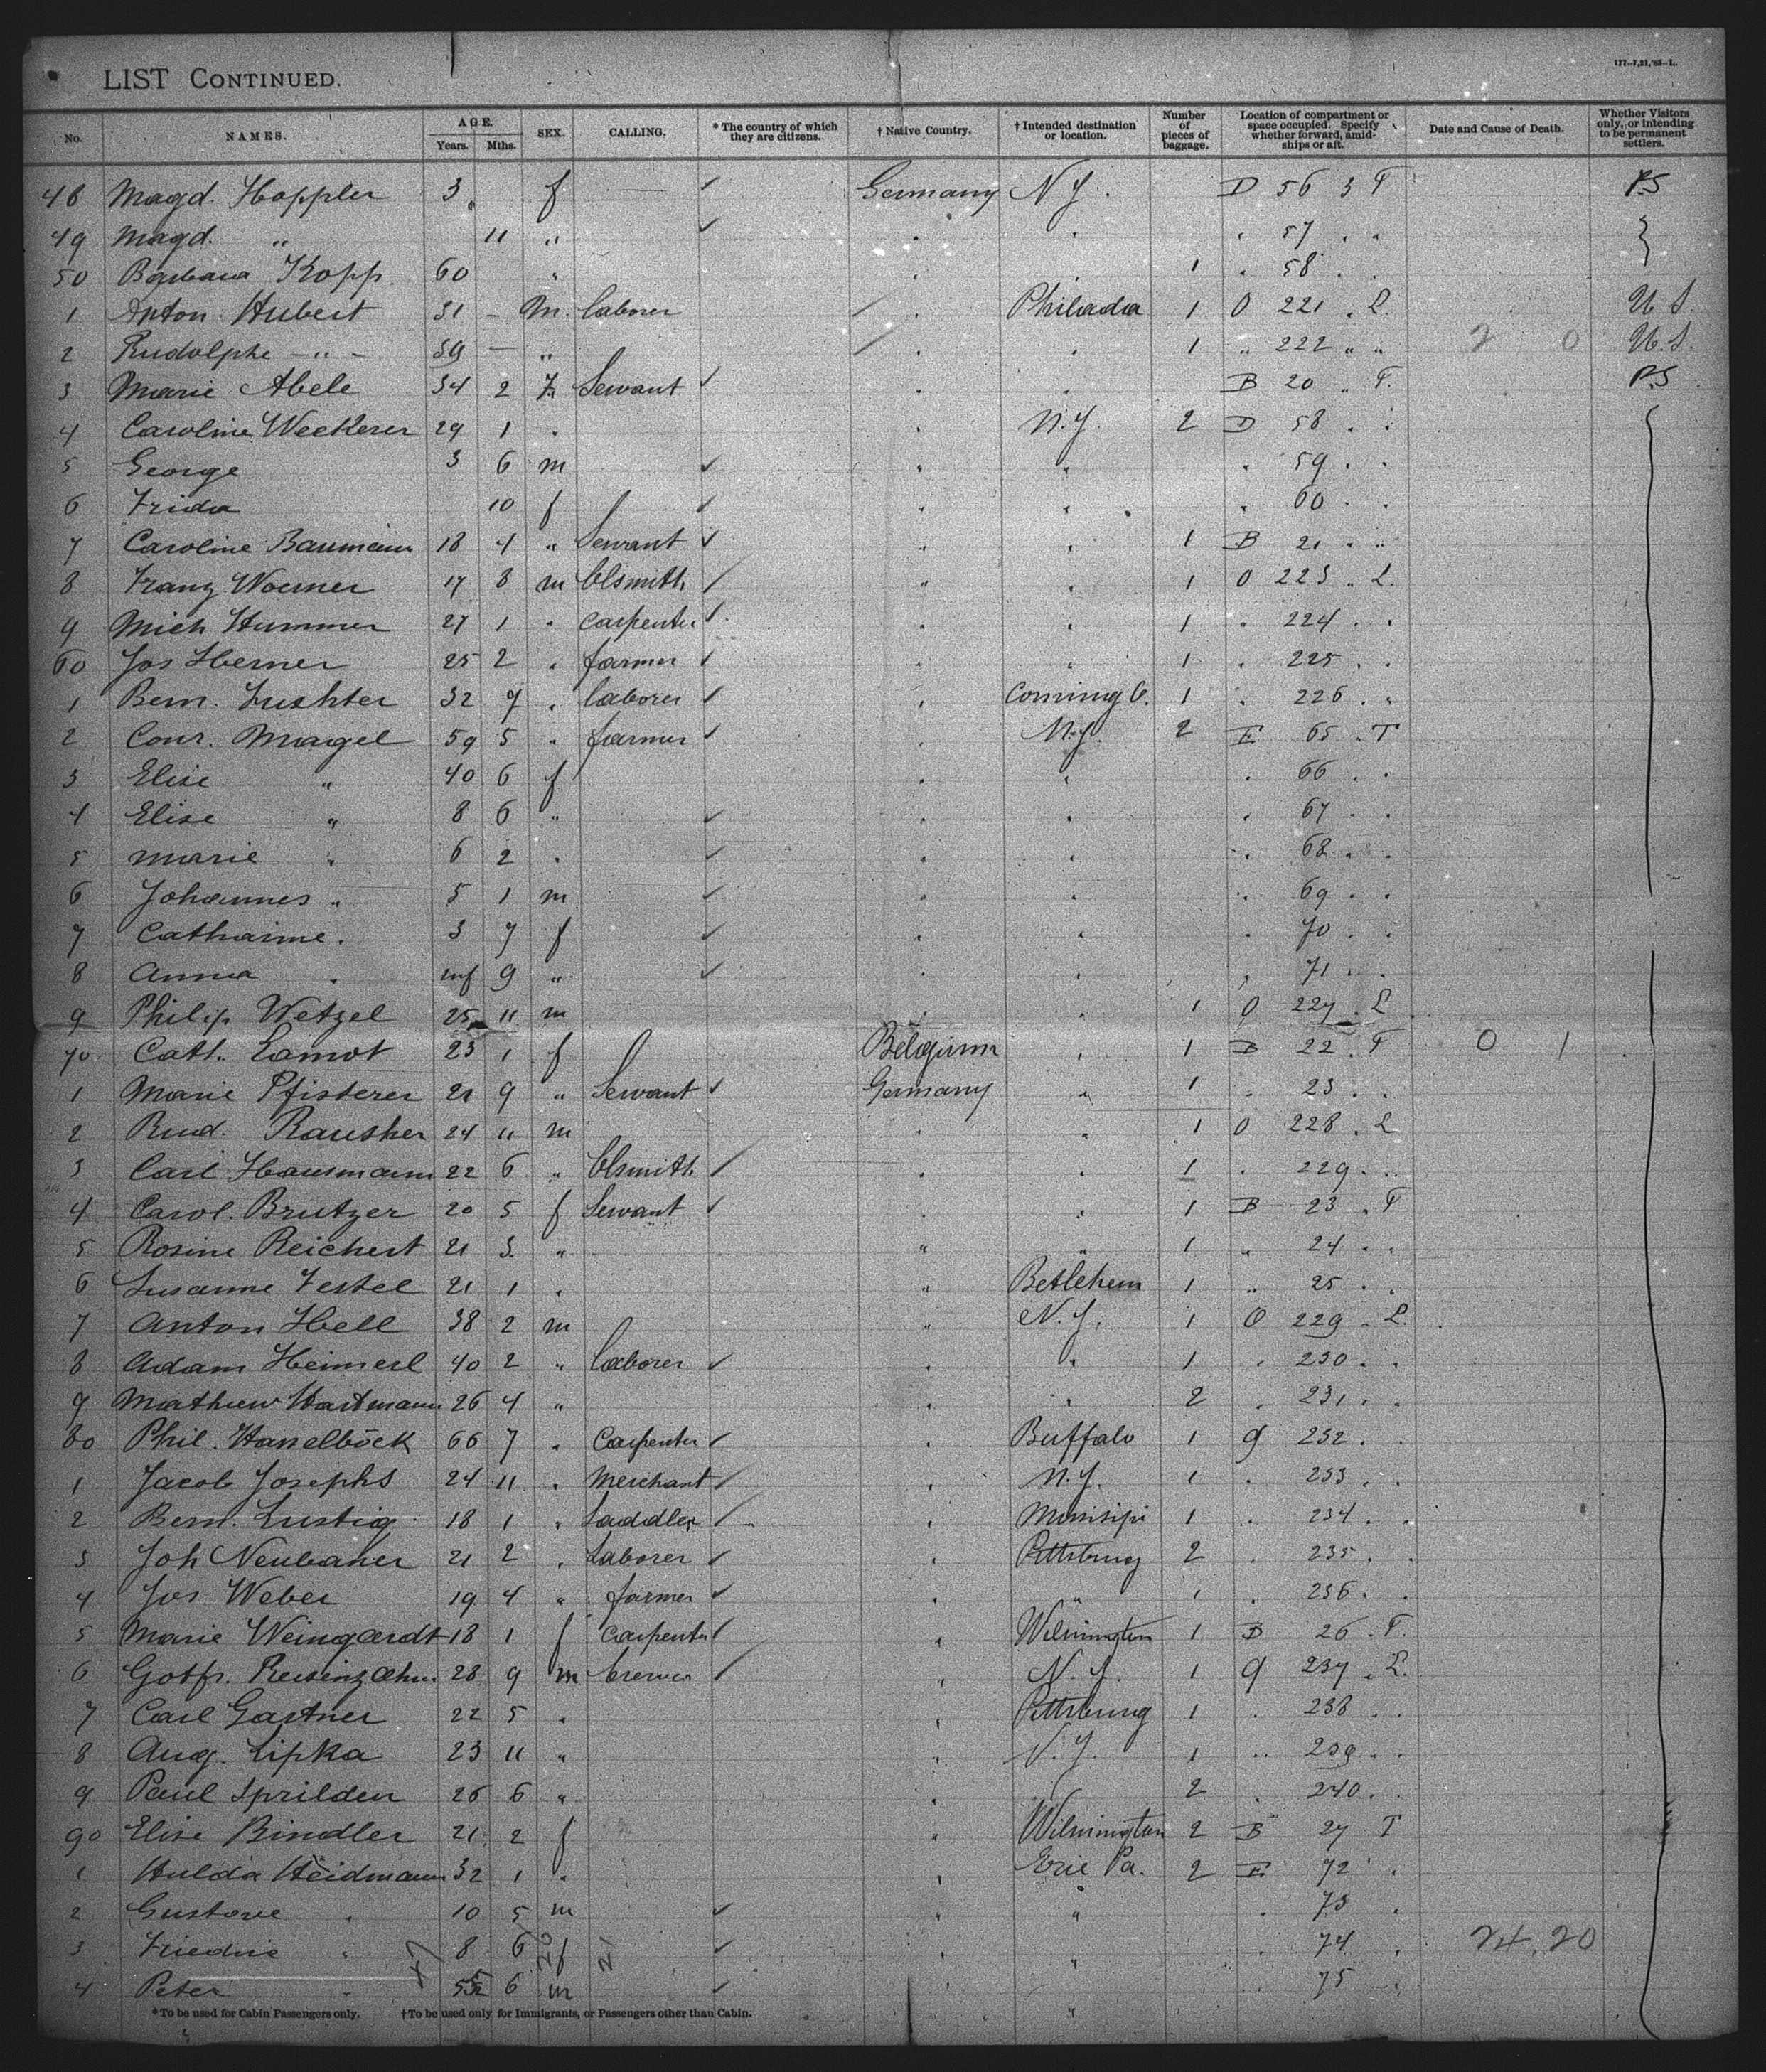 LIST CONTINUED. 177—7,21,'85—L.
No. NAMES. AGE. Years. Mths. SEX. CALLING. * The country of which they are citizens. † Native Country. † Intended destination or location. Number of pieces of baggage. Location of compartment or space occupied. Specify whether forward, amidships or aft. Date and Cause of Death. Whether Visitors only, or intending to be permanent settlers.
48 Magd. Hoppler 3 f ✓ Germany N.Y. D 56 3 T P.S
49 Magd. " 11 " ✓ . . . 57 . .
50 Barbara Kopp 60 . . . 1 . 58 . .
1 Anton Hubert 31 – M. laborer . Philada 1 O 221 . L. U S.
2 Rudolphe – " – 39 – " . . 1 " 222 " " 2 0 U.S.
3 Marie Abele 34 2 F. Servant ✓ . . B 20 . T. P.S
4 Caroline Weckerer 29 1 . . N.Y. 2 D 58 . .
5 George 3 6 m ✓ . . . 59 . .
6 Frida 10 f ✓ . . . 60 . .
7 Caroline Baumann 18 4 " Servant ✓ . . 1 B 21 . .
8 Franz Woerner 17 8 m Blsmith ✓ . . 1 O 223 . L.
9 Mich Hummer 27 1 . carpenter ✓ . . 1 . 224 . .
60 Jos Herner 25 2 . farmer ✓ . . 1 . 225 . .
1 Bern. 32 9 . laborer ✓ . Corning O. 1 . 226 . .
2 Conr. Magel 59 5 . farmer ✓ . N.Y. 2 E 65 . T
3 Elise " 40 6 f . . . 66 . .
4 Elise " 8 6 " ✓ . . . 67 . .
5 Marie " 6 2 . ✓ . . . 68 . .
6 Johannes " 5 1 m ✓ . . . 69 . .
7 Catharine . 3 7 f ✓ . . . 70 . .
8 Anna . inf 9 " ✓ . . . 71 . .
9 Philip Wetzel 25 11 m . . 1 O 227 . L
70 Cath. Lamot 23 1 f Belgium . 1 B 22 . T 0 1
1 Marie Pfisterer 21 9 " Servant ✓ Germany " 1 . 23 . .
2 Rud. Rausher 24 11 m . . 1 O 228 . L
3 Carl Hausmann 22 6 " Blsmith ✓ . . 1 . 229 . .
4 Carol. Brutzer 20 5 f Servant ✓ . . 1 B 23 . T
5 Rosine Reichert 21 3 " " " 1 . 24 . .
6 Susanne Festel 21 1 . " Betlehem 1 " 25 . .
7 Anton Hell 38 2 m " N.Y. 1 O 229 . L.
8 Adam Heimerl 40 2 " laborer ✓ . " 1 . 230 . .
9 Mathew Hartmann 26 4 " . . 2 . 231 . .
80 Phil. Hanelböck 66 7 . Carpenter ✓ . Buffalo 1 G 232 . .
1 Jacob Josephs 24 11 . Merchant ✓ . N.Y. 1 . 233 . .
2 Bern. Lustig 18 1 . Saddler ✓ . Missisipi 1 . 234 . .
3 Joh Neubauer 21 2 . Laborer ✓ . Pittsburg 2 . 235 . .
4 Jos Weber 19 4 " farmer ✓ . " 1 . 236 . .
5 Marie Weingardt 18 1 f Carpenter ✓ . Wilmington 1 B 26 . T.
6 Gotfr. 28 9 m brewer ✓ " N.Y. 1 G 237 . L.
7 Carl Gartner 22 5 . . Pittsburg 1 . 238 . .
8 Aug. Lipka 23 11 " . N.Y. 1 " 239 . .
9 Paul Sprilden 26 6 " . 2 . 240 . .
90 Elise Bindler 21 2 f " Wilmington 2 B 27 T
1 Hulda Heidmann 32 1 . . Erie Pa. 2 E 72 .
2 Gustave . 10 5 m ✓ " " . 73 .
3 " 8 6 f ✓ " . 74 . 24. 20
4 Peter . 6 m ✓ . 75 .
47 20 21
*To be used for Cabin Passengers only. †To be used only for Immigrants, or Passengers other than Cabin.